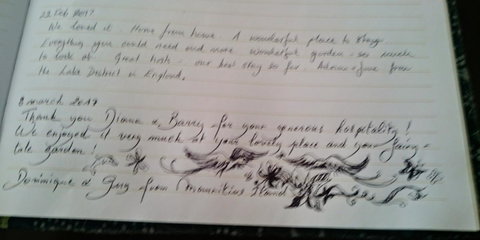 22 Feb 2017
We loved it Home from home. A wonderful place to stay.
Everything you could need and more wonderful garden - so much
to look at Great hosts - our best stay so far. from
the Lake District in England.
8 march 2017
Thank you Diana & Barry for your generous hospitality!
We enjoyed it very much at your lovely place and your fairy-
tale garden!
Dominique & Guy from (Mauritius Island